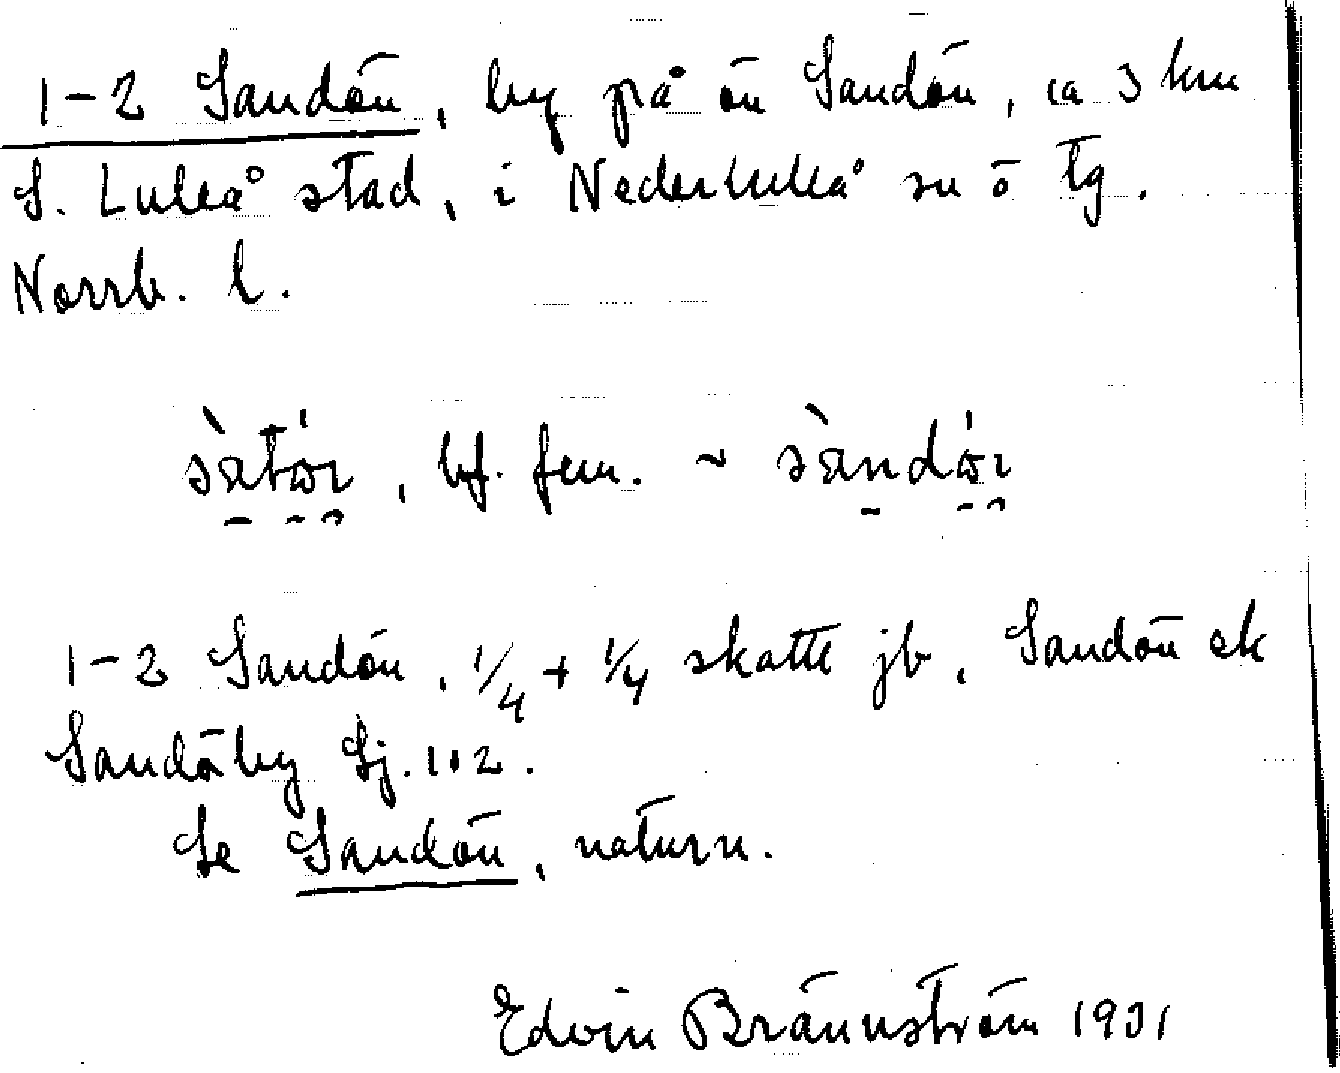 1-2 Sandön, by på ön Sandön, ca 3 km
S. Luleå stad, i Nederluleå sn ö tg.
Norrb. l.
bf. fem. ~
1-2 Sandön, 1/4 + 1/4 skatte jb, Sandön ek
Sandöby Sj. 1+2.
Se Sandön, naturn.
Edvin Brännström 1931